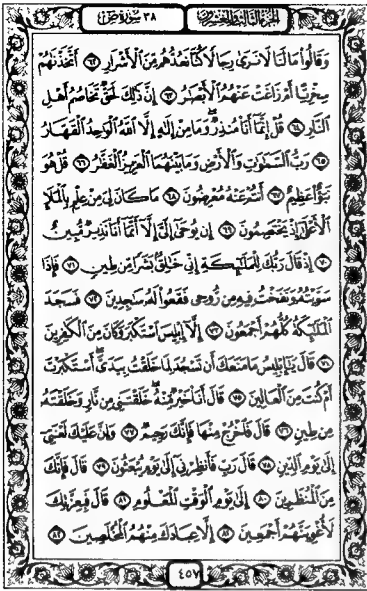 الجزء الثالث والعشرون ٣٨ سورة ص
وَقَالُوا۟ مَا لَنَا لَا نَرَىٰ رِجَالًا كُنَّا نَعُدُّهُم مِّنَ ٱلْأَشْرَارِ ٦٢ أَتَّخَذْنَٰهُمْ
سِخْرِيًّا أَمْ زَاغَتْ عَنْهُمُ ٱلْأَبْصَٰرُ ٦٣ إِنَّ ذَٰلِكَ لَحَقٌّ تَخَاصُمُ أَهْلِ
ٱلنَّارِ ٦٤ قُلْ إِنَّمَآ أَنَا۠ مُنذِرٌ وَمَا مِنْ إِلَٰهٍ إِلَّا ٱللَّهُ ٱلْوَٰحِدُ ٱلْقَهَّارُ
٦٥ رَبُّ ٱلسَّمَٰوَٰتِ وَٱلْأَرْضِ وَمَا بَيْنَهُمَا ٱلْعَزِيزُ ٱلْغَفَّٰرُ ٦٦ قُلْ هُوَ
نَبَؤٌا۟ عَظِيمٌ ٦٧ أَنتُمْ عَنْهُ مُعْرِضُونَ ٦٨ مَا كَانَ لِىَ مِنْ عِلْمٍۭ بِٱلْمَلَإِ
ٱلْأَعْلَىٰٓ إِذْ يَخْتَصِمُونَ ٦٩ إِن يُوحَىٰٓ إِلَىَّ إِلَّآ أَنَّمَآ أَنَا۠ نَذِيرٌ مُّبِينٌ
٧٠ إِذْ قَالَ رَبُّكَ لِلْمَلَٰٓئِكَةِ إِنِّى خَٰلِقٌۢ بَشَرًا مِّن طِينٍ ٧١ فَإِذَا
سَوَّيْتُهُۥ وَنَفَخْتُ فِيهِ مِن رُّوحِى فَقَعُوا۟ لَهُۥ سَٰجِدِينَ ٧٢ فَسَجَدَ
ٱلْمَلَٰٓئِكَةُ كُلُّهُمْ أَجْمَعُونَ ٧٣ إِلَّآ إِبْلِيسَ ٱسْتَكْبَرَ وَكَانَ مِنَ ٱلْكَٰفِرِينَ
٧٤ قَالَ يَٰٓإِبْلِيسُ مَا مَنَعَكَ أَن تَسْجُدَ لِمَا خَلَقْتُ بِيَدَىَّ أَسْتَكْبَرْتَ
أَمْ كُنتَ مِنَ ٱلْعَالِينَ ٧٥ قَالَ أَنَا۠ خَيْرٌ مِّنْهُ خَلَقْتَنِى مِن نَّارٍ وَخَلَقْتَهُۥ
مِن طِينٍ ٧٦ قَالَ فَٱخْرُجْ مِنْهَا فَإِنَّكَ رَجِيمٌ ٧٧ وَإِنَّ عَلَيْكَ لَعْنَتِىٓ
إِلَىٰ يَوْمِ ٱلدِّينِ ٧٨ قَالَ رَبِّ فَأَنظِرْنِىٓ إِلَىٰ يَوْمِ يُبْعَثُونَ ٧٩ قَالَ فَإِنَّكَ
مِنَ ٱلْمُنظَرِينَ ٨٠ إِلَىٰ يَوْمِ ٱلْوَقْتِ ٱلْمَعْلُومِ ٨١ قَالَ فَبِعِزَّتِكَ
لَأُغْوِيَنَّهُمْ أَجْمَعِينَ ٨٢ إِلَّا عِبَادَكَ مِنْهُمُ ٱلْمُخْلَصِينَ ٨٣
٤٥٧